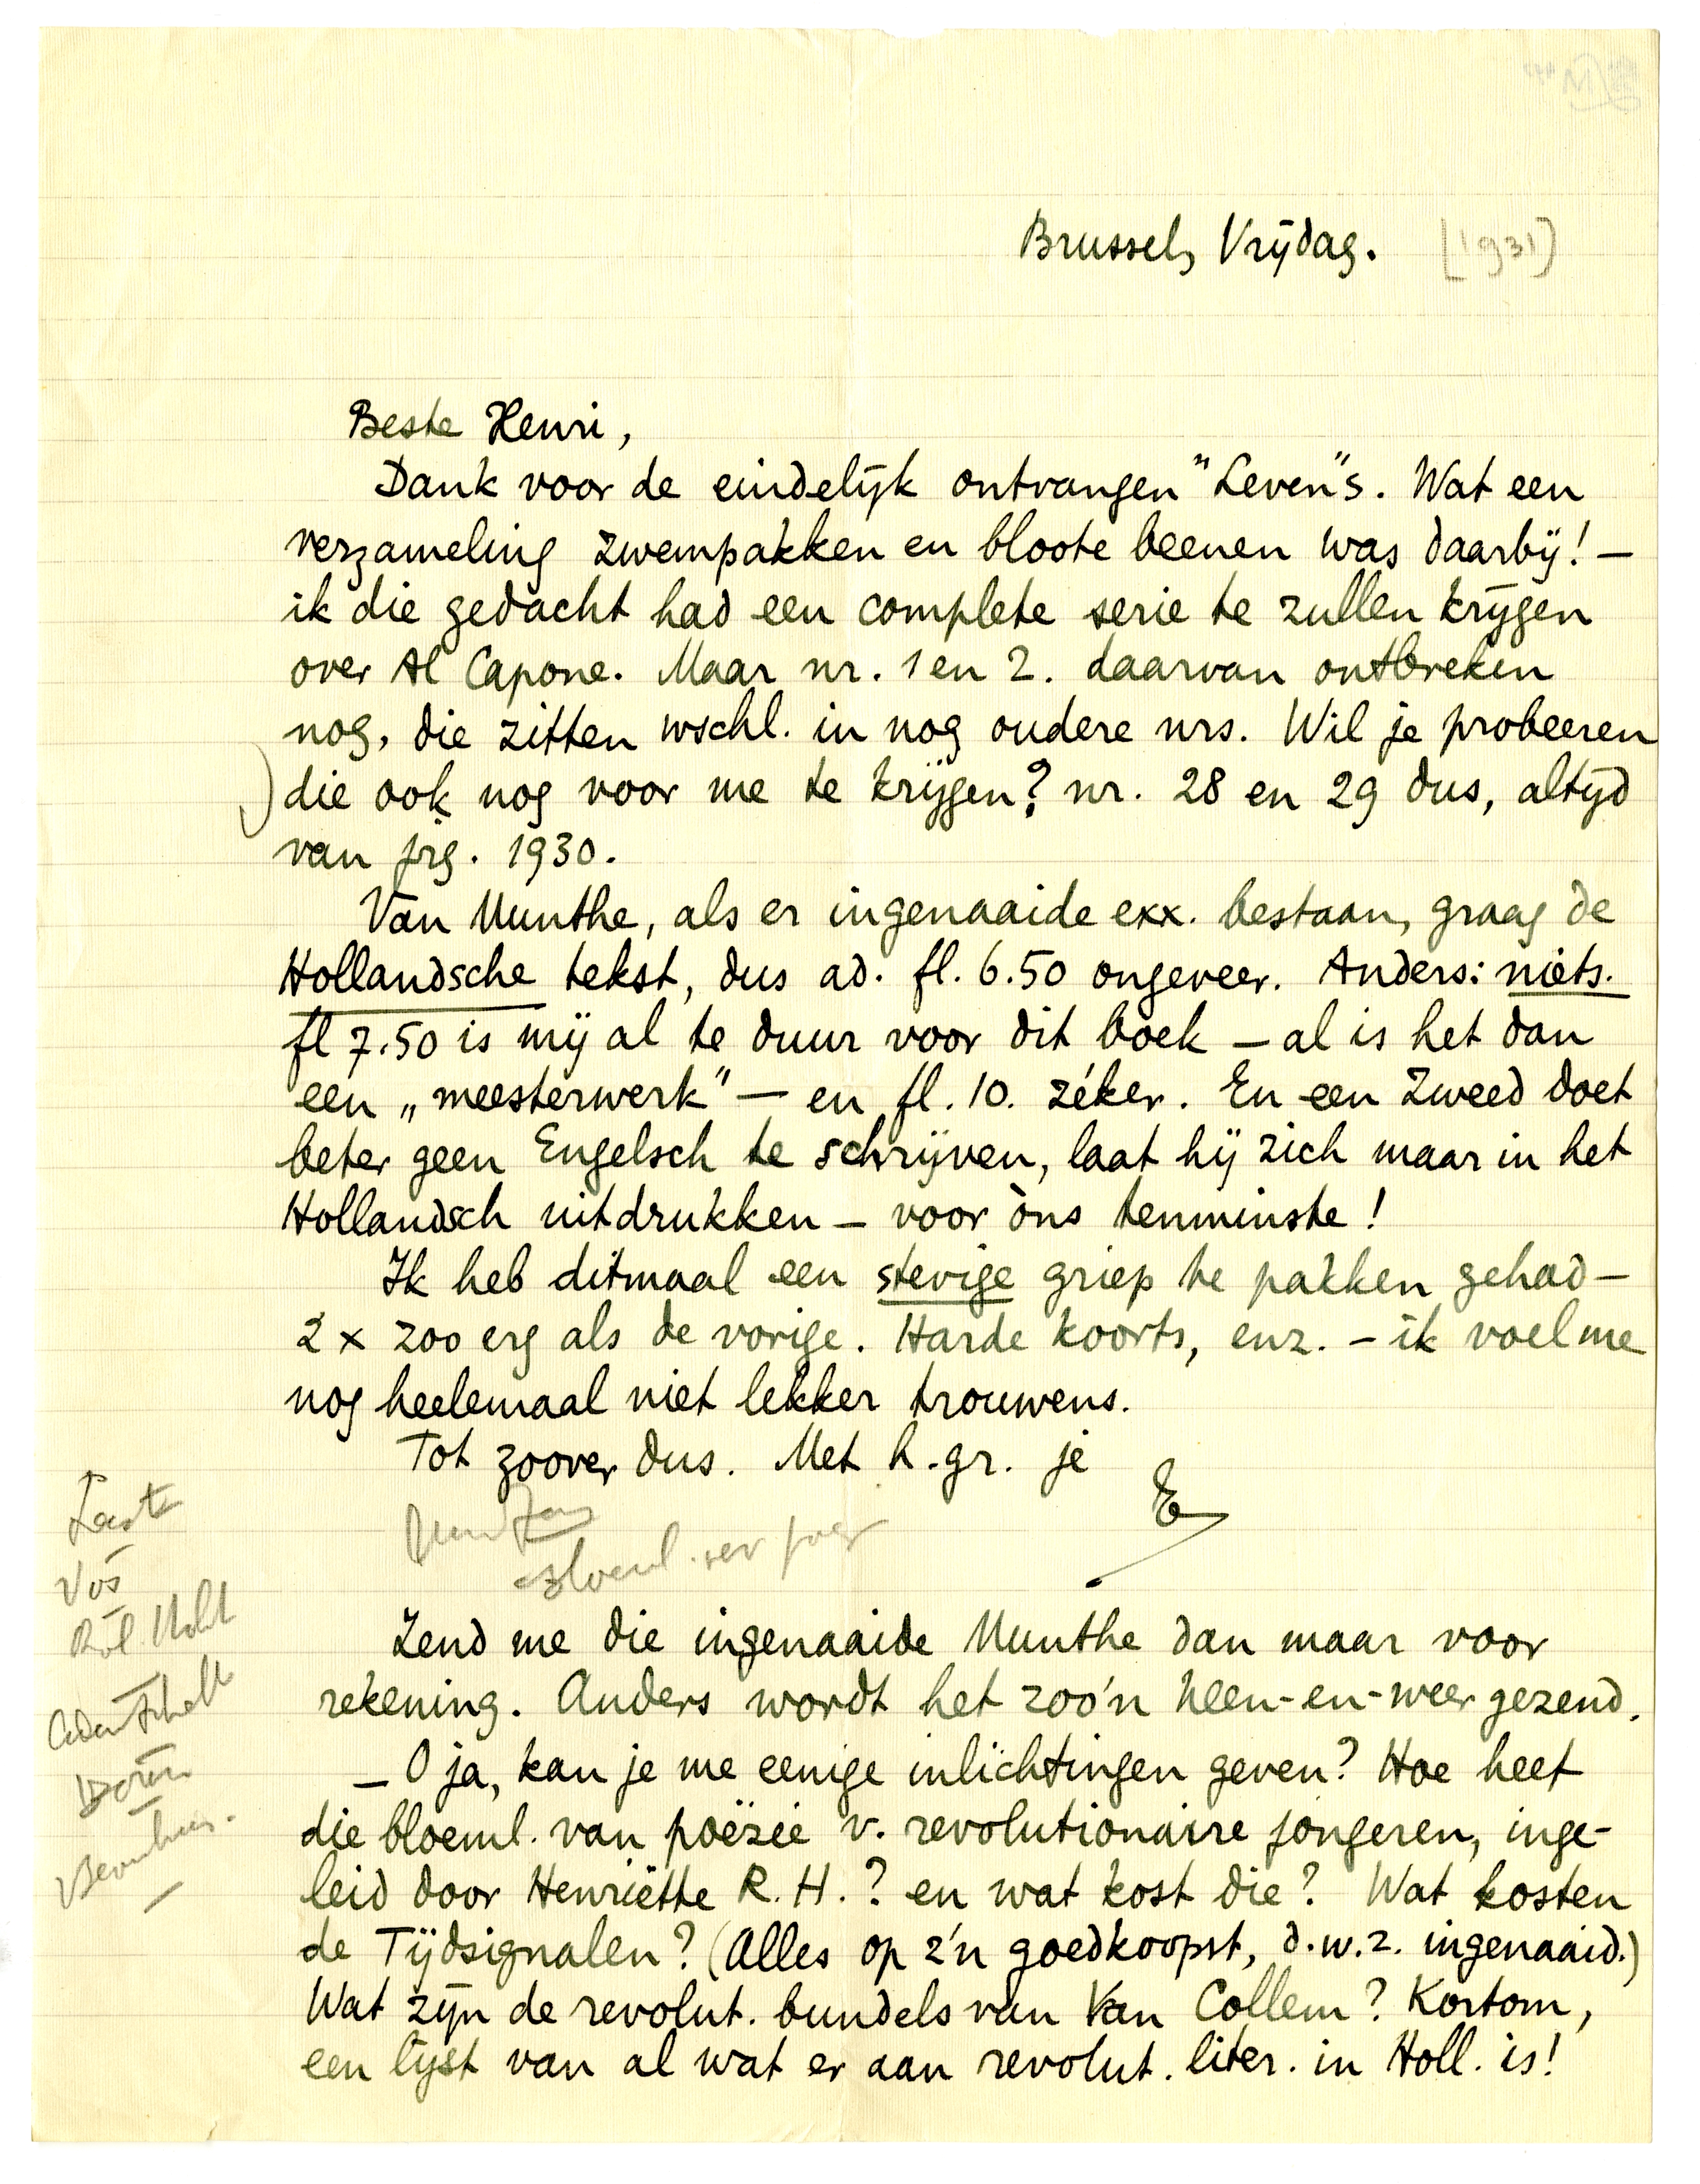 Brussel, Vrijdag. [1931]
Beste Henri,
Dank voor de eindelijk ontvangen "Leven"s. Wat een
verzameling zwempakken en bloote beenen was daarbij! —
ik die gedacht had een complete serie te zullen krijgen
over Al Capone. Maar nr. 1 en 2. daarvan ontbreken
nog, die zitten wschl. in nog oudere nrs. Wil je probeeren
die ook nog voor me te krijgen? nr. 28 en 29 dus, altijd
van jrg. 1930.
Van Munthe, als er ingenaaide exx. bestaan, graag de
Hollandsche tekst, dus ad. fl. 6.50 ongeveer. Anders: niets.
fl 7.50 is mij al te duur voor dit boek — al is het dan
een „meesterwerk" — en fl. 10. zéker. En een Zweed doet
beter geen Engelsch te schrijven, laat hij zich maar in het
Hollandsch uitdrukken — voor òns tenminste!
Ik heb ditmaal een stevige griep te pakken gehad —
2 x zoo erg als de vorige. Harde koorts, enz. — ik voel me
nog heelemaal niet lekker trouwens.
Tot zoover dus. Met h. gr. je
E
Last
Vos
Zend me die ingenaaide Munthe dan maar voor
rekening. Anders wordt het zoo'n heen-en-weer gezend.
— O ja, kan je me eenige inlichtingen geven? Hoe heet
die bloeml. van poëzie v. revolutionaire jongeren, inge-
leid door Henriëtte R. H.? en wat kost die? Wat kosten
de Tijdsignalen? (Alles op z'n goedkoopst, d.w.z. ingenaaid.)
Wat zijn de revolut. bundels van Van Collem? Kortom,
een lijst van al wat er aan revolut. liter. in Holl. is!